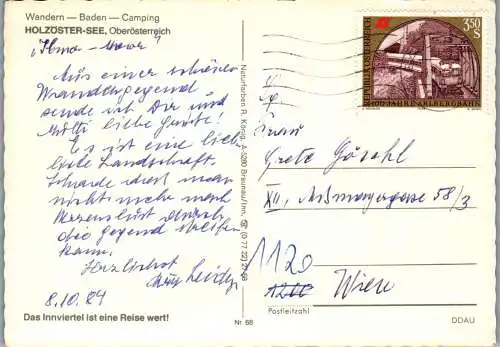 Wandern — Baden — Camping
HOLZÖSTER-SEE, Oberösterreich
Aus einer schönen
Wandergegend
sende ich Dir und
liebe Grüße!
Es ist eine lieb
liche Landschaft.
Schade daß man
nicht mehr nach
Herzenslust durch
die Gegend streifen
kann.
Herzlichst
8.10.84
Das Innviertel ist eine Reise wert!
Nr 68
Naturfarben R. König, A-5280 Braunau/Inn,
3.50
S
REPUBLIK ÖSTERREICH
100 JAHRE ARLBERGBAHN
Frau
Grete
XII., 58/3
1120
1200 Wien
Postleitzahl
DDAU